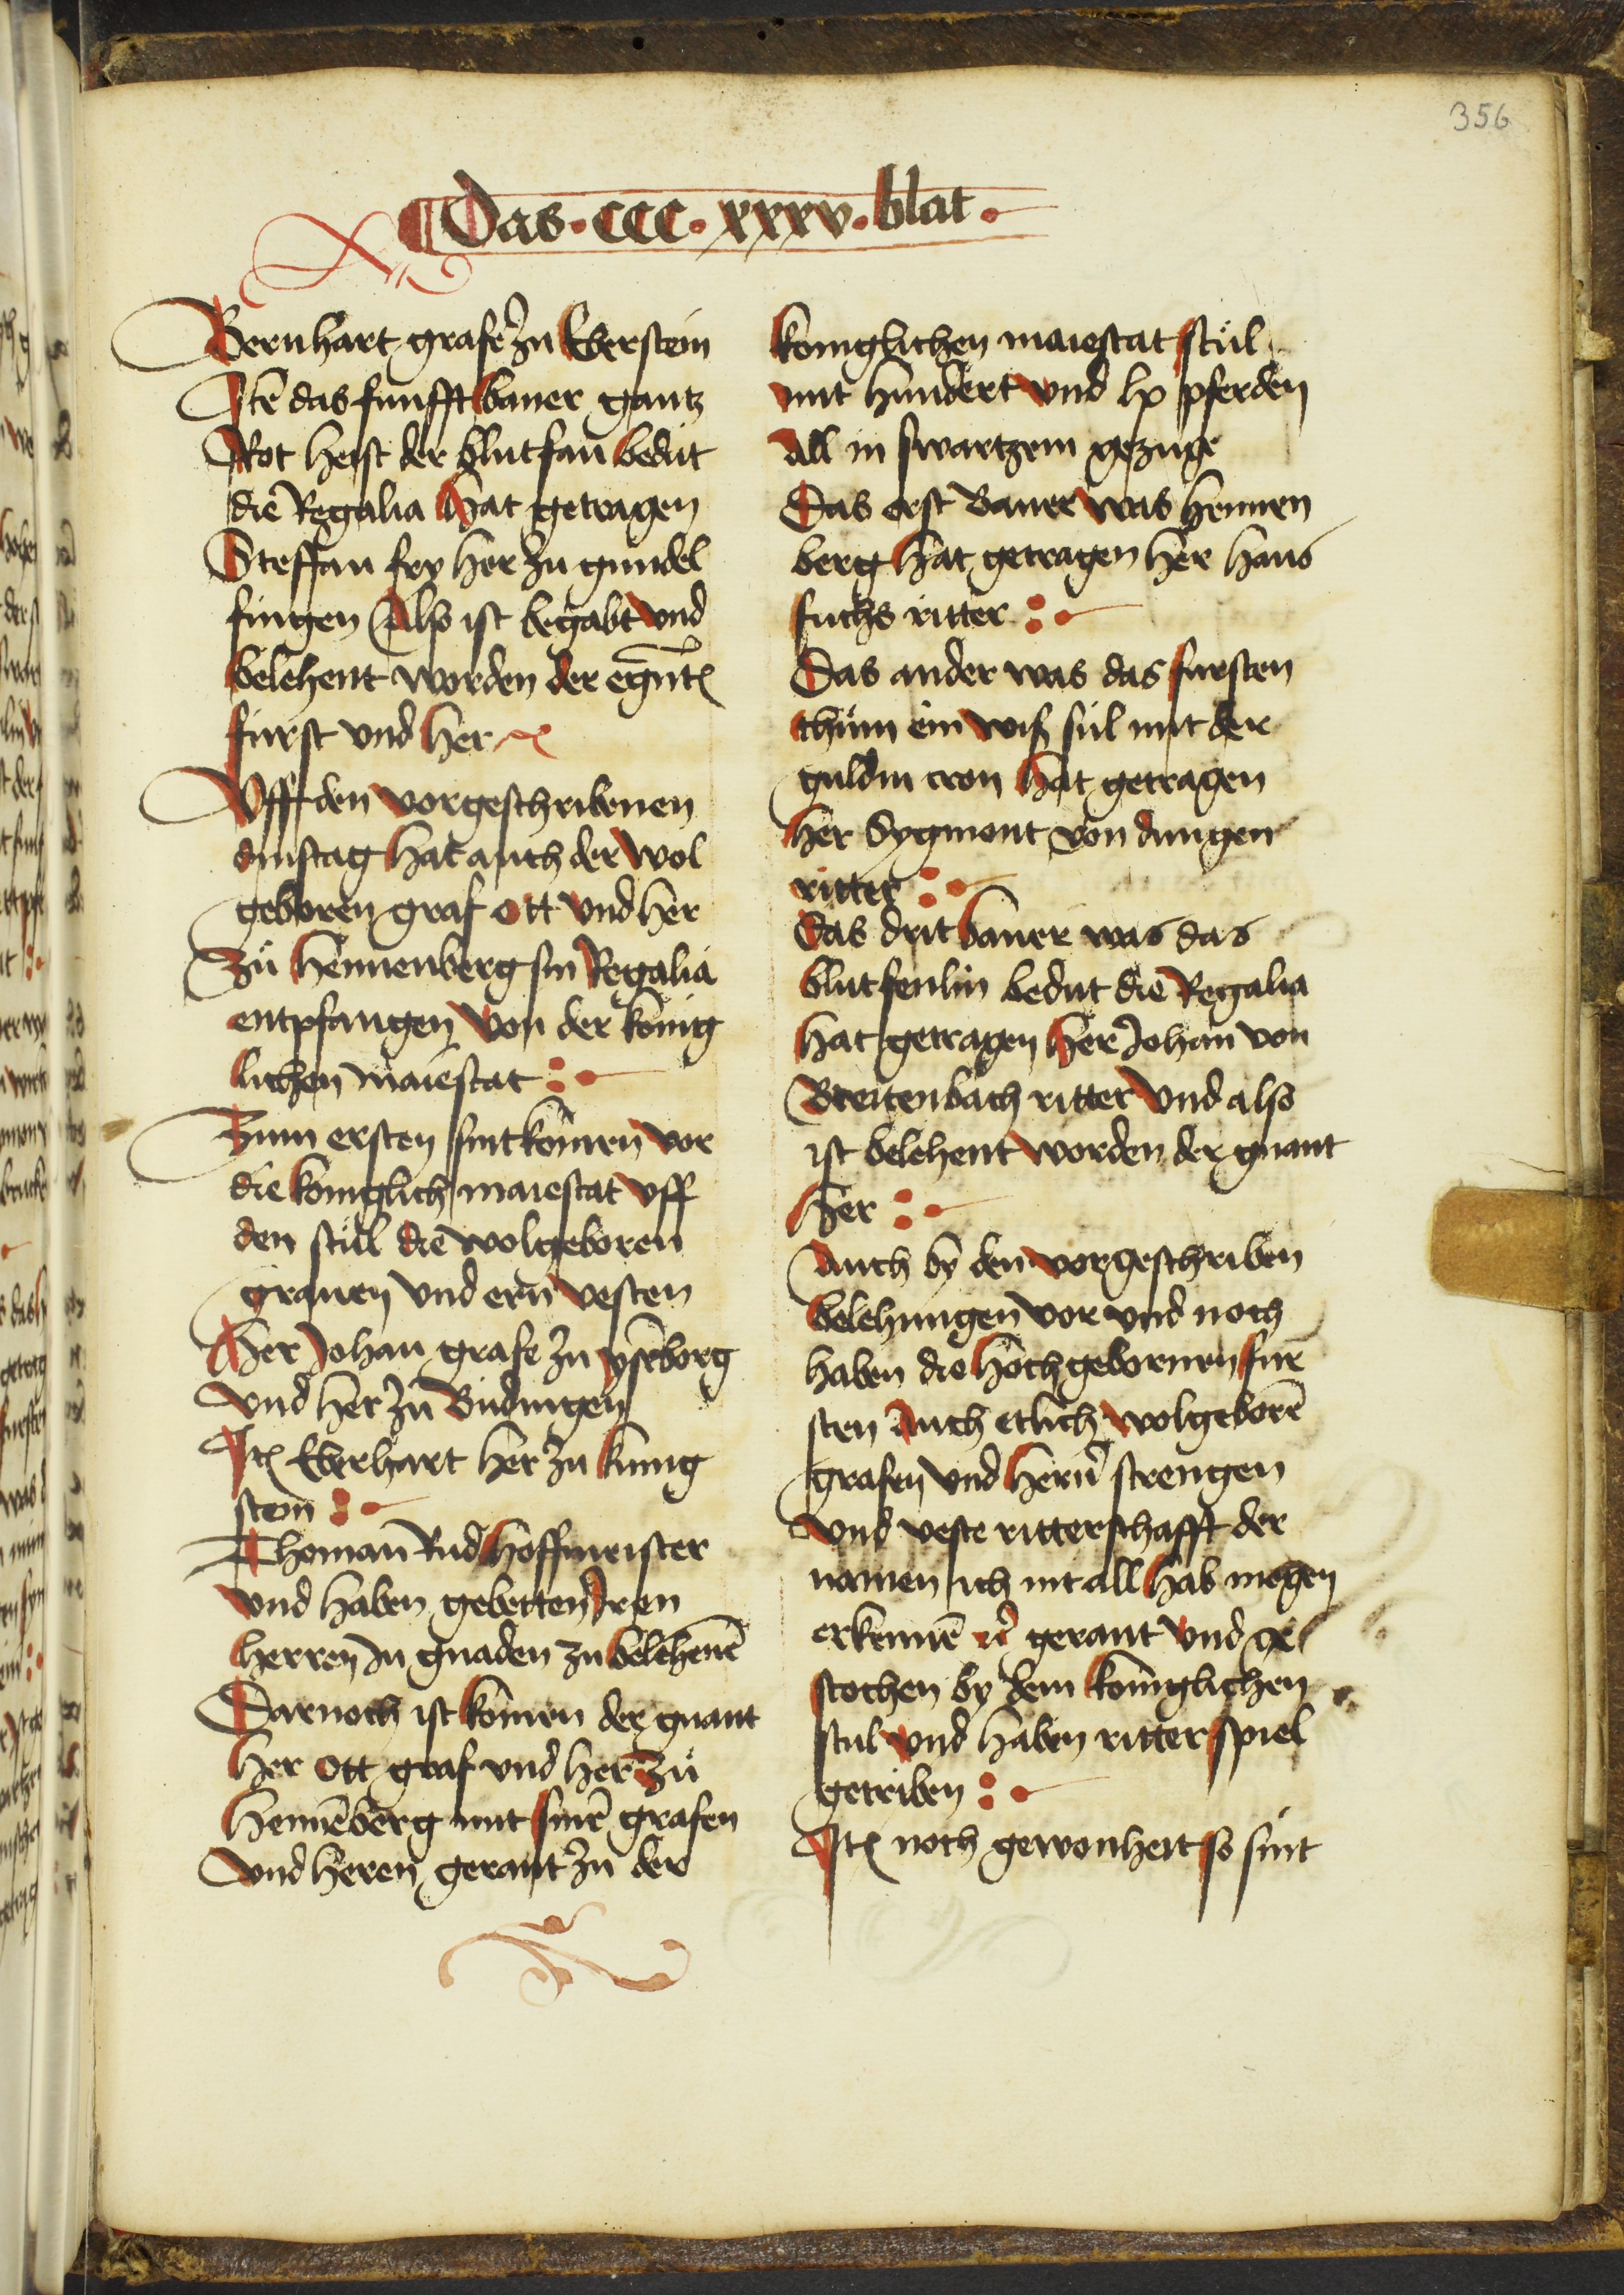 356
Das · ccc · xxxv · blat ·
Bernhart grafe zu Eberstein
Itē das funfft baner gantz
Rot heist der blutfan bedut
die Regalia hat getragen
Steffan fry her zu gundel
fingen Also ist begabt vnd
belehent worden der egn̄t
furst vnd her
Vff den vorgeschribenen
dinstag hat auch der wol
geboren graf Ott vnd her
Zu hennenberg sin Regalia
entpfangen von der konig
lichen maiestat
Zum ersten sint komen vor
die koniglich maiestat vff
den stůl die wolgeboren
grauen vnd ern vesten
Her Johan grafe zu ysēborg
vnd her zu Budingen
Itē Eberhart her zu kunig
stein
Thoman Rud hoffmeister
vnd haben gebetten Iren
herren In gnaden zu belehenē
Darnoch ist komen der gnant
her Ott graf vnd her Zu
hennēberg mit sinē grafen
vnd heren gerant zu der
koniglichen maiestat stůl
mit hundert vnd lx pferden
All in swartzem gezuge
Das erst Baner was hennen
berg hat getragen her hans
fuchs ritter
Das ander was das fursten
thům ein wiß sul mit der
guldin cron hat getragen
her Sygmont von dungen
ritter
Das drit baner was das
blutfenlin bedut die Regalia
hat getragen her Johan von
Breitenbach ritter vnd also
ist belehent worden der gnant
her
Auch by den vorgeschriben
belehungen vor vnd noch
haben die hochgebornen fur
sten Auch etlich wolgeborē
grafen vnd hern strengen
vnd veste ritterschafft der
namen ich nit all hab mogen
erkennē gerant vnd ge
stochen by dem koniglichen
stul vnd haben ritter spiel
getriben
Itē noch gewonheit so sint